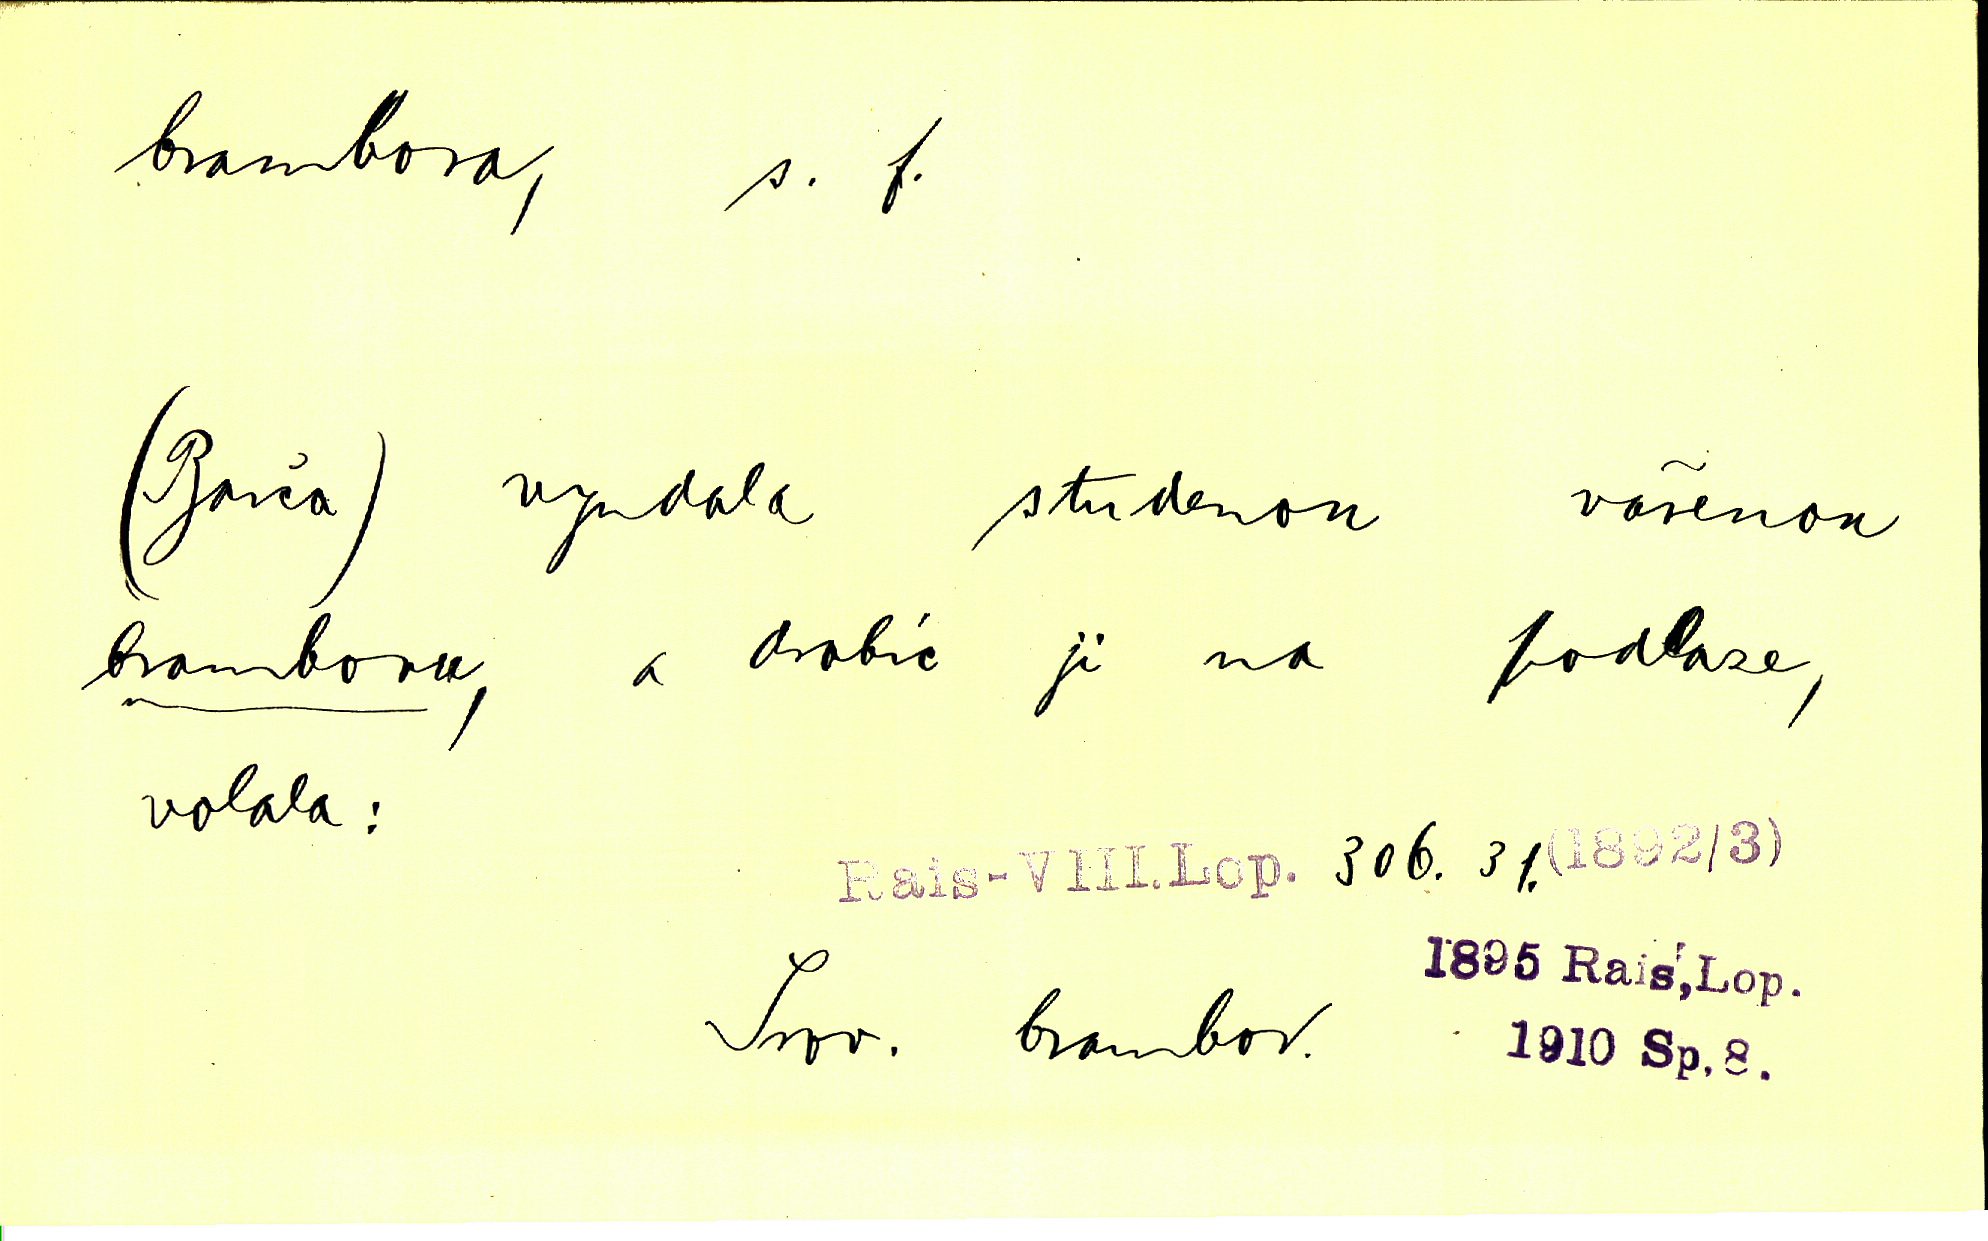 brambora, s. f.
(Barča) vyndala studenou vařenou
bramboru, a drobíc ji na podlaze,
volala:
Rais-VIII.Lop. 306. 31. (1892/3)
1895 Rais, Lop.
Srov. brambor.
1910 Sp. 8.